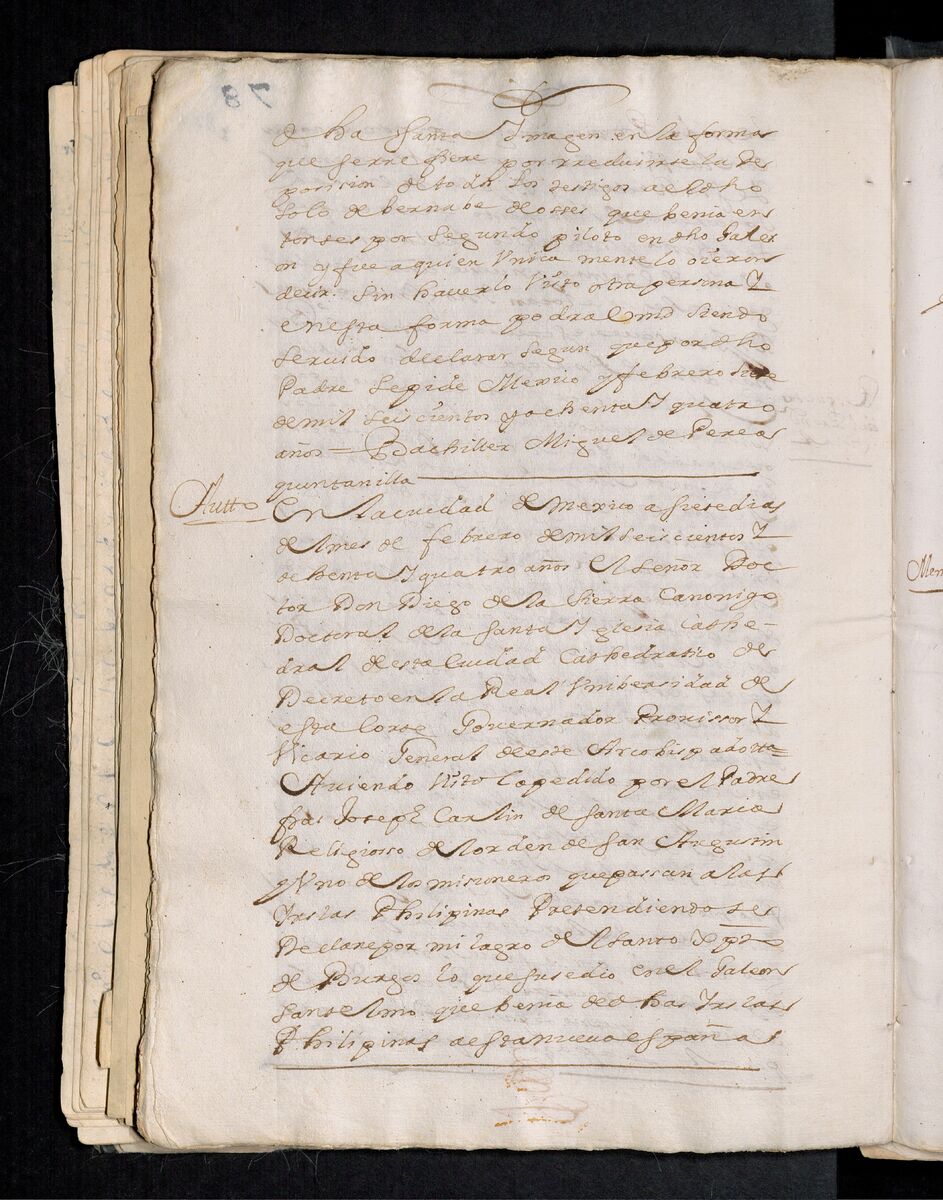 73
dha santa Ymagen en la forma
que se rrefiere por rreducirse la de
posicion de todos los testigos a el dho
solo de bernabe de osses que benia en
tonses por segundo piloto en dho Galeo
on y fue a quien Vnica mente lo oieron
decir. Sin haverlo Visto otra persona Y
en esta forma podra Vmd siendo
servido declarar segun que por dho
Padre se pide Mexico y febrero siete
de mil seiscientos y ochenta Y quatro
años = Bachiller Miguel de Perea
quintanilla
Autto En la ciudad de Mexico a siete dias
del mes de febrero de mil seiscientos Y
ochenta Y quatro años El señor Doc
tor Don Diego de la Sierra Canonigo
Doctoral de la Santa Yglesia Cathe-
dral de esta Ciudad Cathedratico de
Decreto en la Real Vnibersidad de
esta Corte Governador Provissor Y
Vicario General de este Arcobispado
Aviendo Visto lo pedido por el Padre
frai Joseph Carlin de Santa Maria
Religiosso del orden de San Augustin
y Vno de los misioneros que passan a las
Yslas Philipinas Pretendiendo se
Declare por milagro del Santo Xpto
de Burgos lo que susedio en el Galeon
Santelmo que benia de dhas Yslas
Philipinas a esta nueva españa